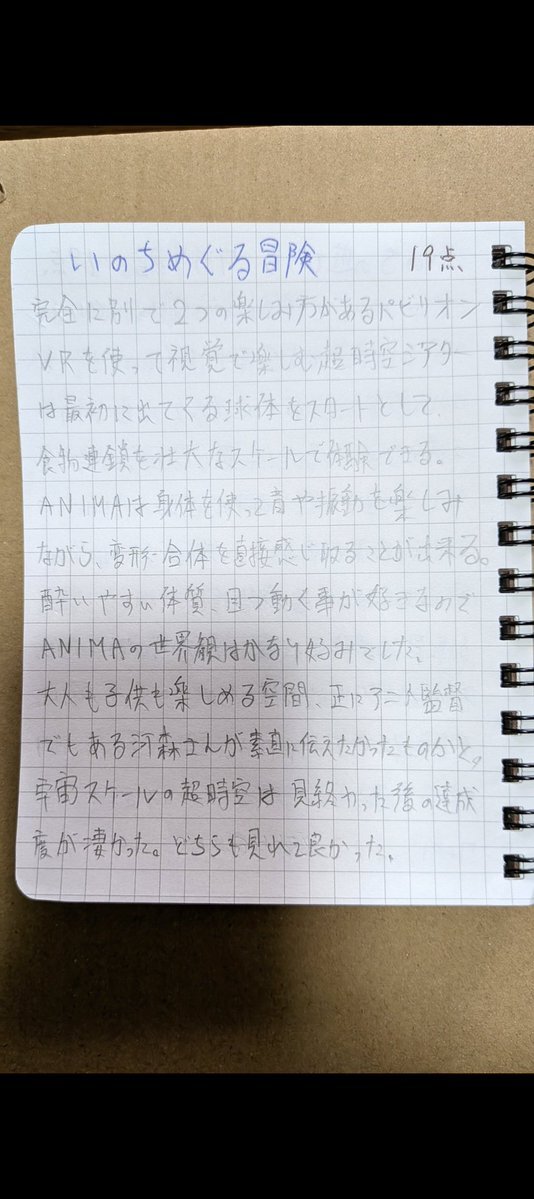 いのちめぐる冒険 19点
完全に別で2つの楽しみ方があるパビリオン
VRを使って視覚で楽しむ超時空シアター
は最初に出てくる球体をスタートとして、
食物連鎖を壮大なスケールで体験できる。
ANIMAは身体を使って音や振動を楽しみ
ながら、変形・合体を直接感じ取ることが出来る。
酔いやすい体質、且つ動く事が好きなので
ANIMAの世界観はかなり好みでした。
大人も子供も楽しめる空間、正にアニメ監督
でもある河森さんが素直に伝えたかったものかと。
宇宙スケールの超時空は見終わった後の達成
度が凄かった。どちらも見れて良かった。